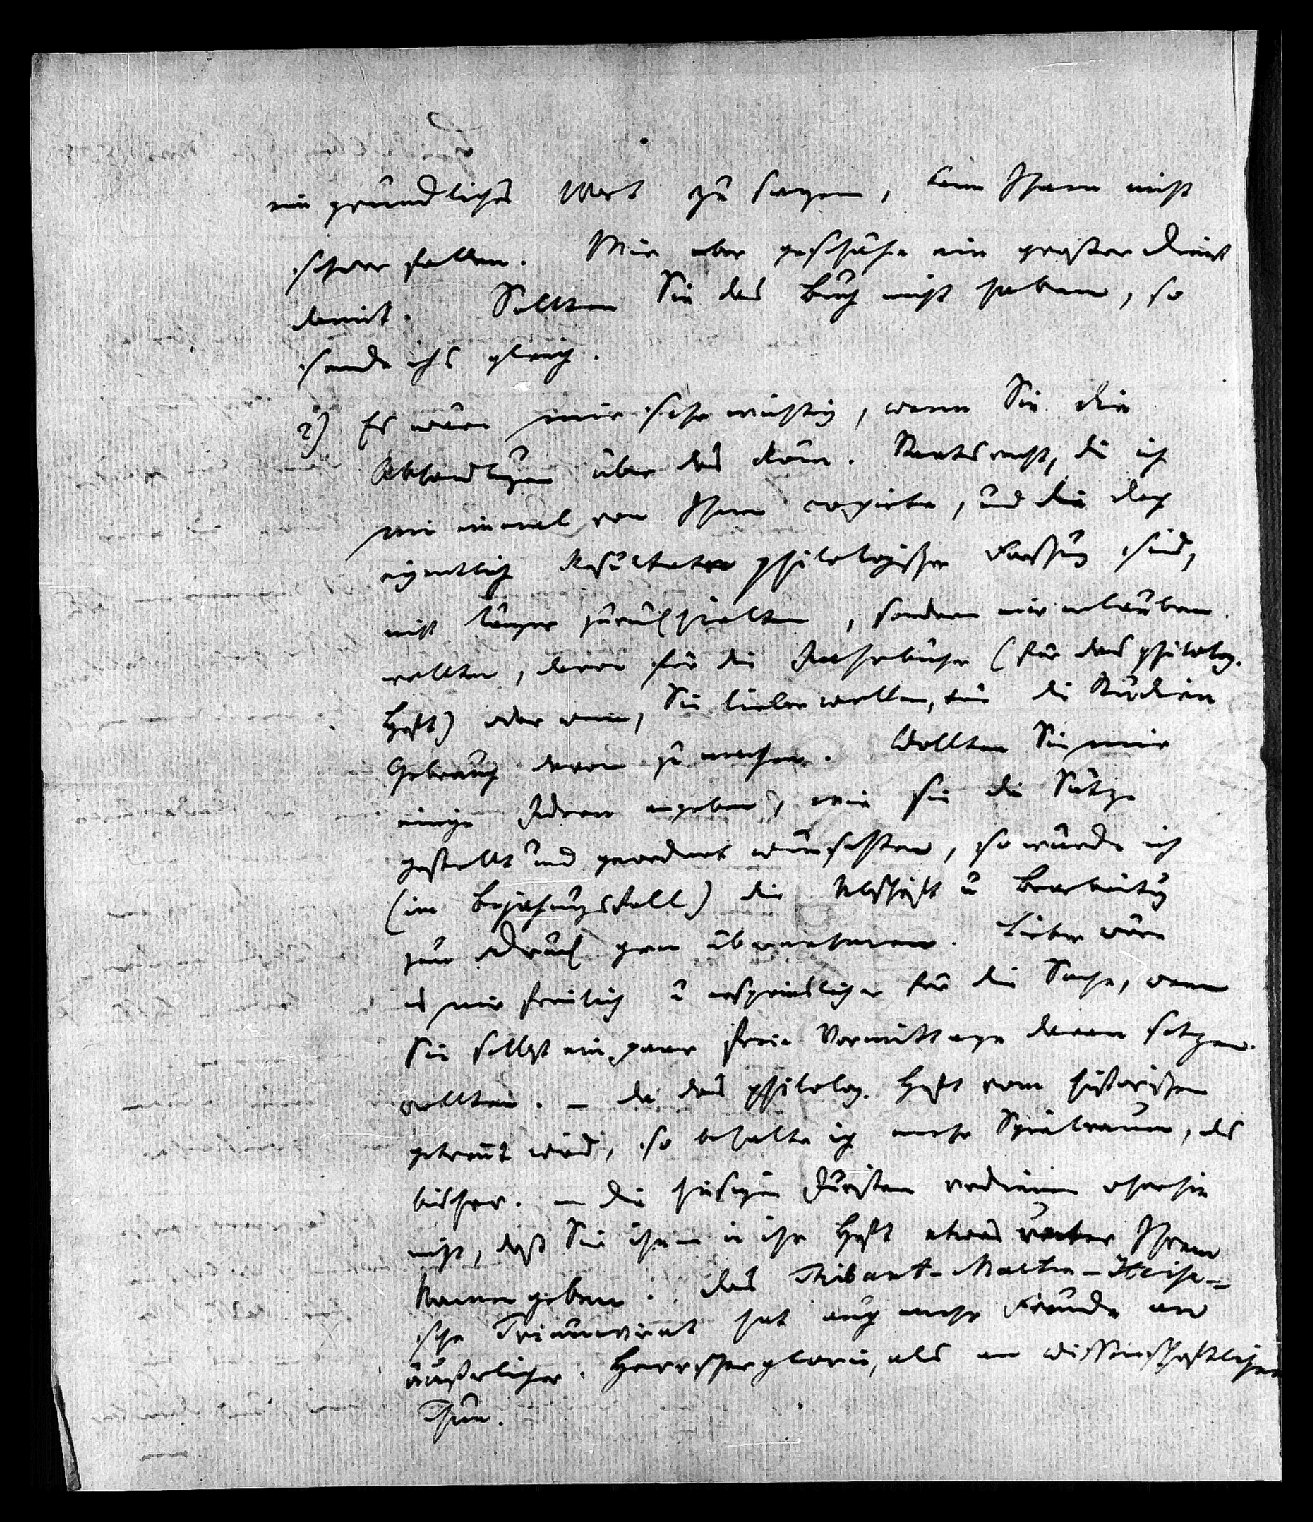 ein gründliches Wort zu sagen, kann Ihnen nicht
schwer fallen. Mir aber geschähe ein großer Dienst
damit. Sollten Sie das Buch nicht haben, so
sende ichs gleich.
2) Es wäre mir sehr wichtig, wenn Sie die
Abhandlungen über das Röm. Staatsrecht, die ich
mir einmal von Ihnen copirte, und die doch
eigentlich Resultate philologischer Forschung sind,
nicht länger zurückhielten, sondern mir erlauben
wollten, davon für die Jahrbücher (für das philolog.
Heft) oder wenn Sie lieber wollen, für die Studien
Gebrauch davon zu machen. Wollten Sie mir
einige Ideen angeben, wie sie die Sätze
gestellt und geordnet wünschten, so würde ich
(im Bejahungsfall) die Abschrift u Bearbeitung
zum Druck gern übernehmen. Lieber wäre
es mir freilich u ersprieslicher für die Sache, wenn
Sie selbst ein paar freie Vormittage daran setzen
wollten. – da das philolog. Heft vom historischen
getrennt wird, so behalte ich mehr Spielraum, als
bisher. – die hiesigen Juristen verdienen ohnehin
nicht, daß Sie ihnen in ihr Heft etwas unter Ihrem
Namen geben: das Thibaut-Martin-Heise-
sche Triumvirat hat auch mehr Freude an
äußerlicher Herrschergloria, als an wissenschaftlichem
Thun.